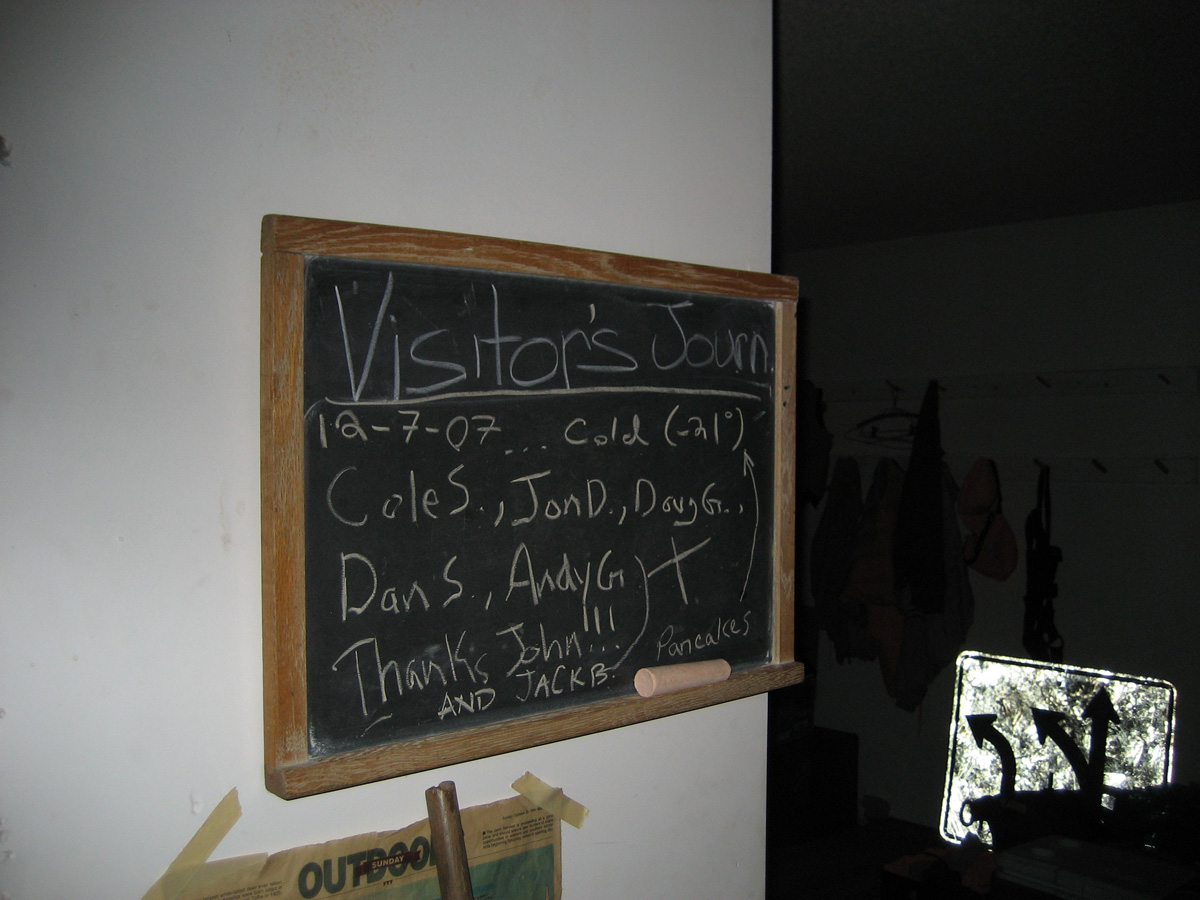 Visitor's Journ.
12-7-07 ... Cold (-21°)
Cole S., Jon D., Doug G.,
Dan S., Andy G
Thanks John!!!
AND JACK B.
Pancakes
OUTDOO
SUNDAY